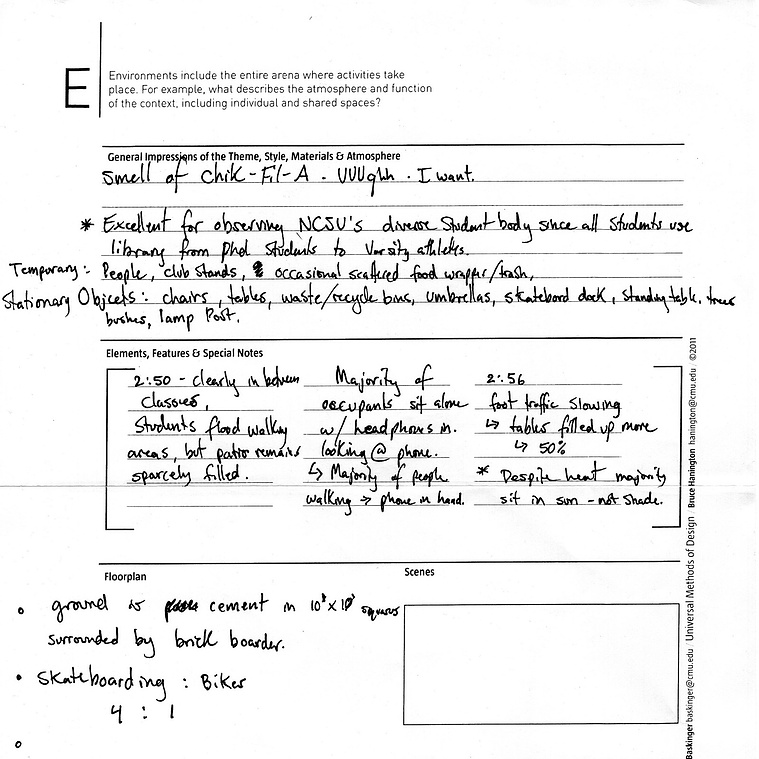 E
Environments include the entire arena where activities take
place. For example, what describes the atmosphere and function
of the context, including individual and shared spaces?
General Impressions of the Theme, Style, Materials & Atmosphere
Smell of Chik-Fil-A. UUUghh. I want.
* Excellent for observing NCSU's diverse student body since all students use
library from phd students to Varsity athletes.
Temporary: People, club stands, occasional scattered food wrapper/trash,
Stationary Objects: chairs, tables, waste/recycle bins, umbrellas, skateboard dock, standing table, trees
bushes, lamp Post.
Elements, Features & Special Notes
2:50 - clearly in between
Classes,
Students flood walking
areas, but patio remains
sparcely filled.
Majority of
occupants sit alone
w/ headphones in.
looking @ phone.
↳ Majority of people
walking → phone in hand.
2:56
foot traffic slowing
↳ tables filled up more
↳ 50%
* Despite heat majority
sit in sun - not shade.
Floorplan
ground is cement in 10'x10' squares
surrounded by brick boarder.
• Skateboarding : Biker
4 : 1
Scenes
Baskinger baskinger@cmu.edu / Universal Methods of Design / Bruce Hanington hanington@cmu.edu / ©2011